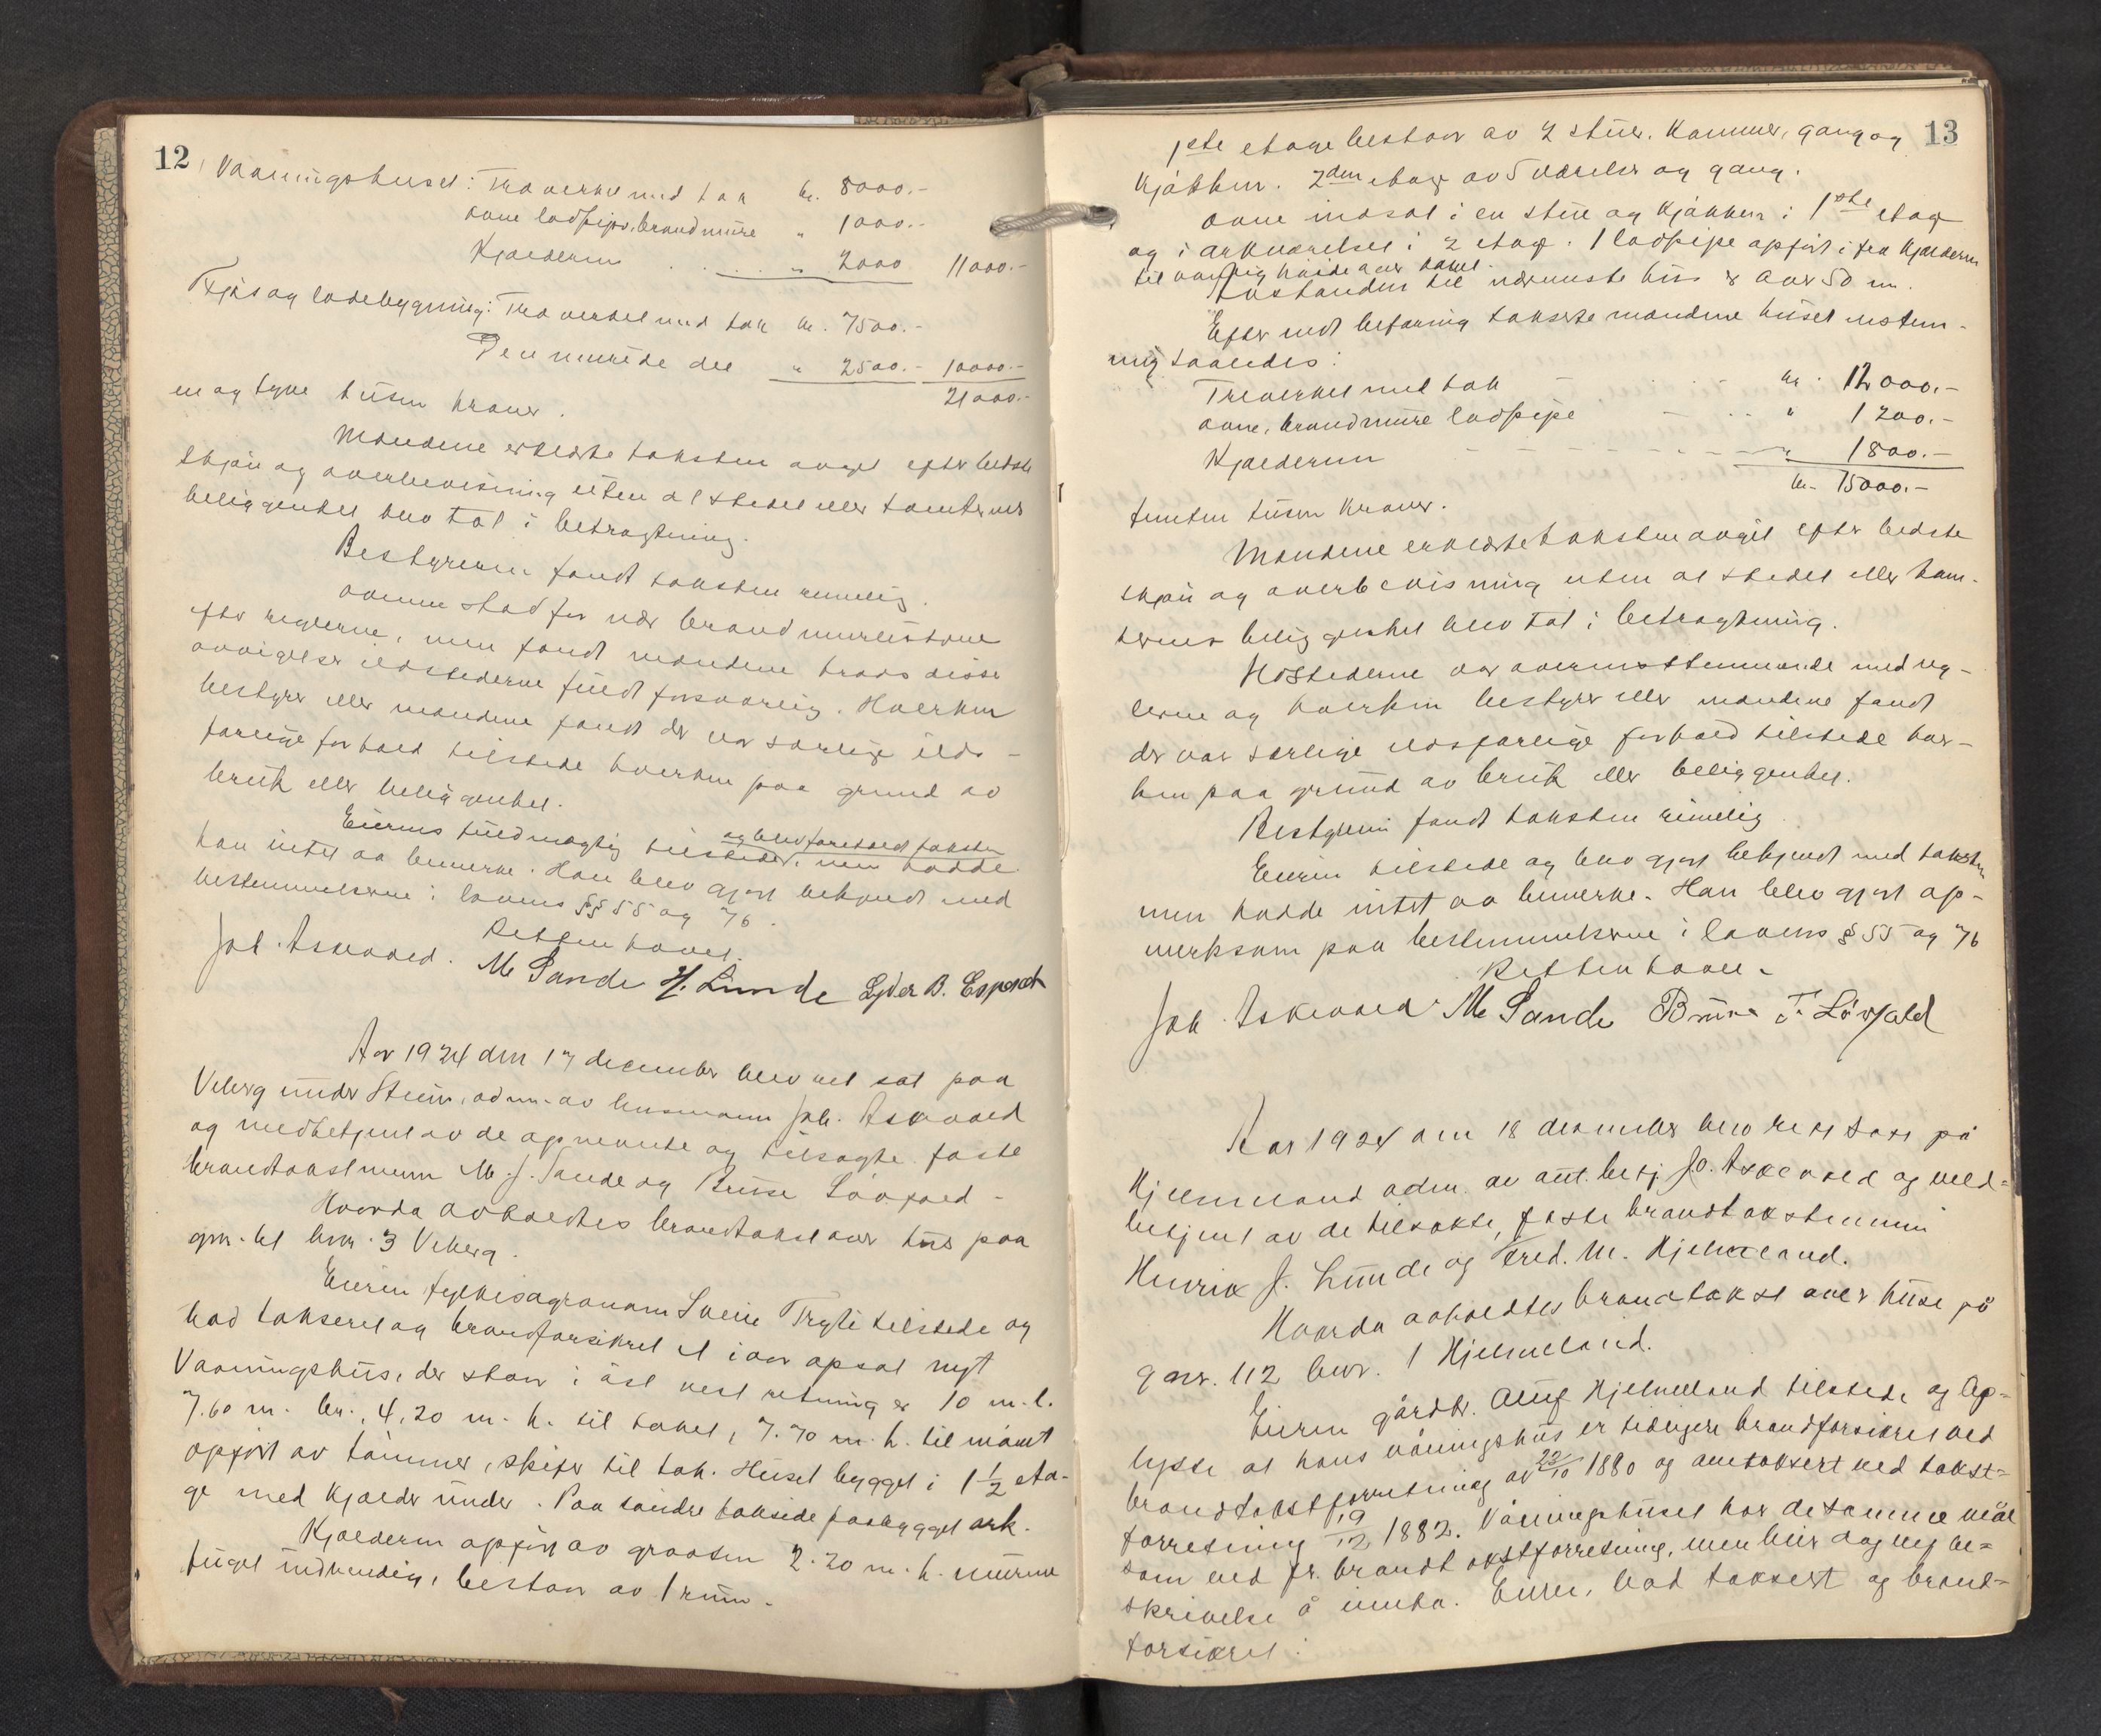 12
Vaaningshuset: Træverket med tak kr. 8000.-
ovne ladpipe, brandmure " 1000.-
Kjælderen " 2000 11000.-
Fjøs og ladebygning: Træverket med tak kr. 7500.-
Den murede del " 2500.- 10000.-
en og tyve tusen kroner. 21000.-
Mændene erklærte taksten avgit efter bedste
skjøn og overbevisning uten at stedet eller tomternes
beliggenhet blev tat i betragtning.
Bestyreren fandt taksten rimelig.
ovnene stod for nær brandmurene
efter reglerne, men fandt mændene trods disse
avvigelser ildstederne fuldt forsvarlig. Hverken
bestyrer eller mændene fandt der var særlige ilds-
farlige forhold tilstede hverken paa grund av
bruk eller beliggenhet.
Eierens fuldmægtig tilstede, og blev foreholdt taksten men hadde
han intet at bemerke. Han blev gjort bekjendt med
bestemmelserne i lovens §§ 55 og 76.
Retten hævet.
Joh. Askevold. M Sande H. Lunde Gjder B. Espeset
Aar 1924 den 17 december blev ret sat paa
Veberg under Steim, adm. av lensmann Joh. Askevold
og medbetjent av de opnevnte og tilsagte faste
brandtakstmenn M. J. Sande og Brune Løvfald -
Hvorda avholdtes brandtakst over hus paa
gnr. 61 bnr. 3 Veberg.
Eieren fylkesagronom Svein Tryti tilstede og
bad taksert og brandforsikret et iaar opsat nyt
Vaaningshus, der staar i øst vest retning er 10 m. l.
7.60 m. br., 4,20 m. h. til taket, 7.70 m. h. til mønet
opført av tømmer, skifer til tak. Huset bygget i 1 1/2 eta-
ge med kjælder under. Paa søndre takside paabygget ark.
Kjælderen opført av graasten 2.20 m. h. murene
fuget indvendig, bestaar av 1 rum.
13
1ste etage bestaar av 2 stuer, kammer, gang og
kjøkken. 2den etage av 5 værelser og gang.
ovne indsat i en stue og kjøkken i 1ste etage
og i arkværelset i 2 etage. 1 ladpipe opført ifra kjælderen
til vanlig høide over taket.
Avstanden til nærmeste hus er over 50 m.
Efter endt befaring takserte mændene huset enstem-
mig saaledes:
Træverket med tak kr. 12000.-
ovne, brandmure ladpipe " 1200.-
Kjælderen " 1800.-
kr. 15000.-
femten tusen kroner.
Mændene erklærte taksten avgit efter bedste
skjøn og overbevisning uten at stedet eller tom-
ternes beliggenhet blev tat i betragtning.
Ildstederne var overensstemmende med reg-
lerne og hverken bestyrer eller mændene fandt
der var særlige ildsfarlige forhold tilstede hver-
ken paa grund av bruk eller beliggenhet.
Bestyreren fandt taksten rimelig
Eieren tilstede og blev gjort bekjendt med taksten
men hadde intet at bemerke. Han blev gjort op-
merksom paa bestemmelserne i lovens § 55 og 76
Retten hævet.
Joh. Askevold M Sande Brune F. Løvfald
Aar 1924 den 18 december blev rett satt på
Hjelmeland adm. av amt. betj. Jo. Askevold og med-
betjent av de tilsakte, faste brandtakstmenn
Henrik J. Lunde og Fred. M. Hjelmeland.
Hvorda avholdtes brandtakst over huse på
gnr. 112 bnr. 1 Hjelmeland.
Eieren gårdbr. Oluf Hjelmeland tilstede og op-
lyste at hans våningshus er tidligere brandforsikret ved
brandtakstforretning av 23/10 1880 og omtaksert ved takst-
forretning 19/12 1882. Våningshuset har de samme mål
som ved fr. brandtakstforretning, men blir dog ny be-
skrivelse å innta. Eieren, bad taksert og brand-
forsikret: